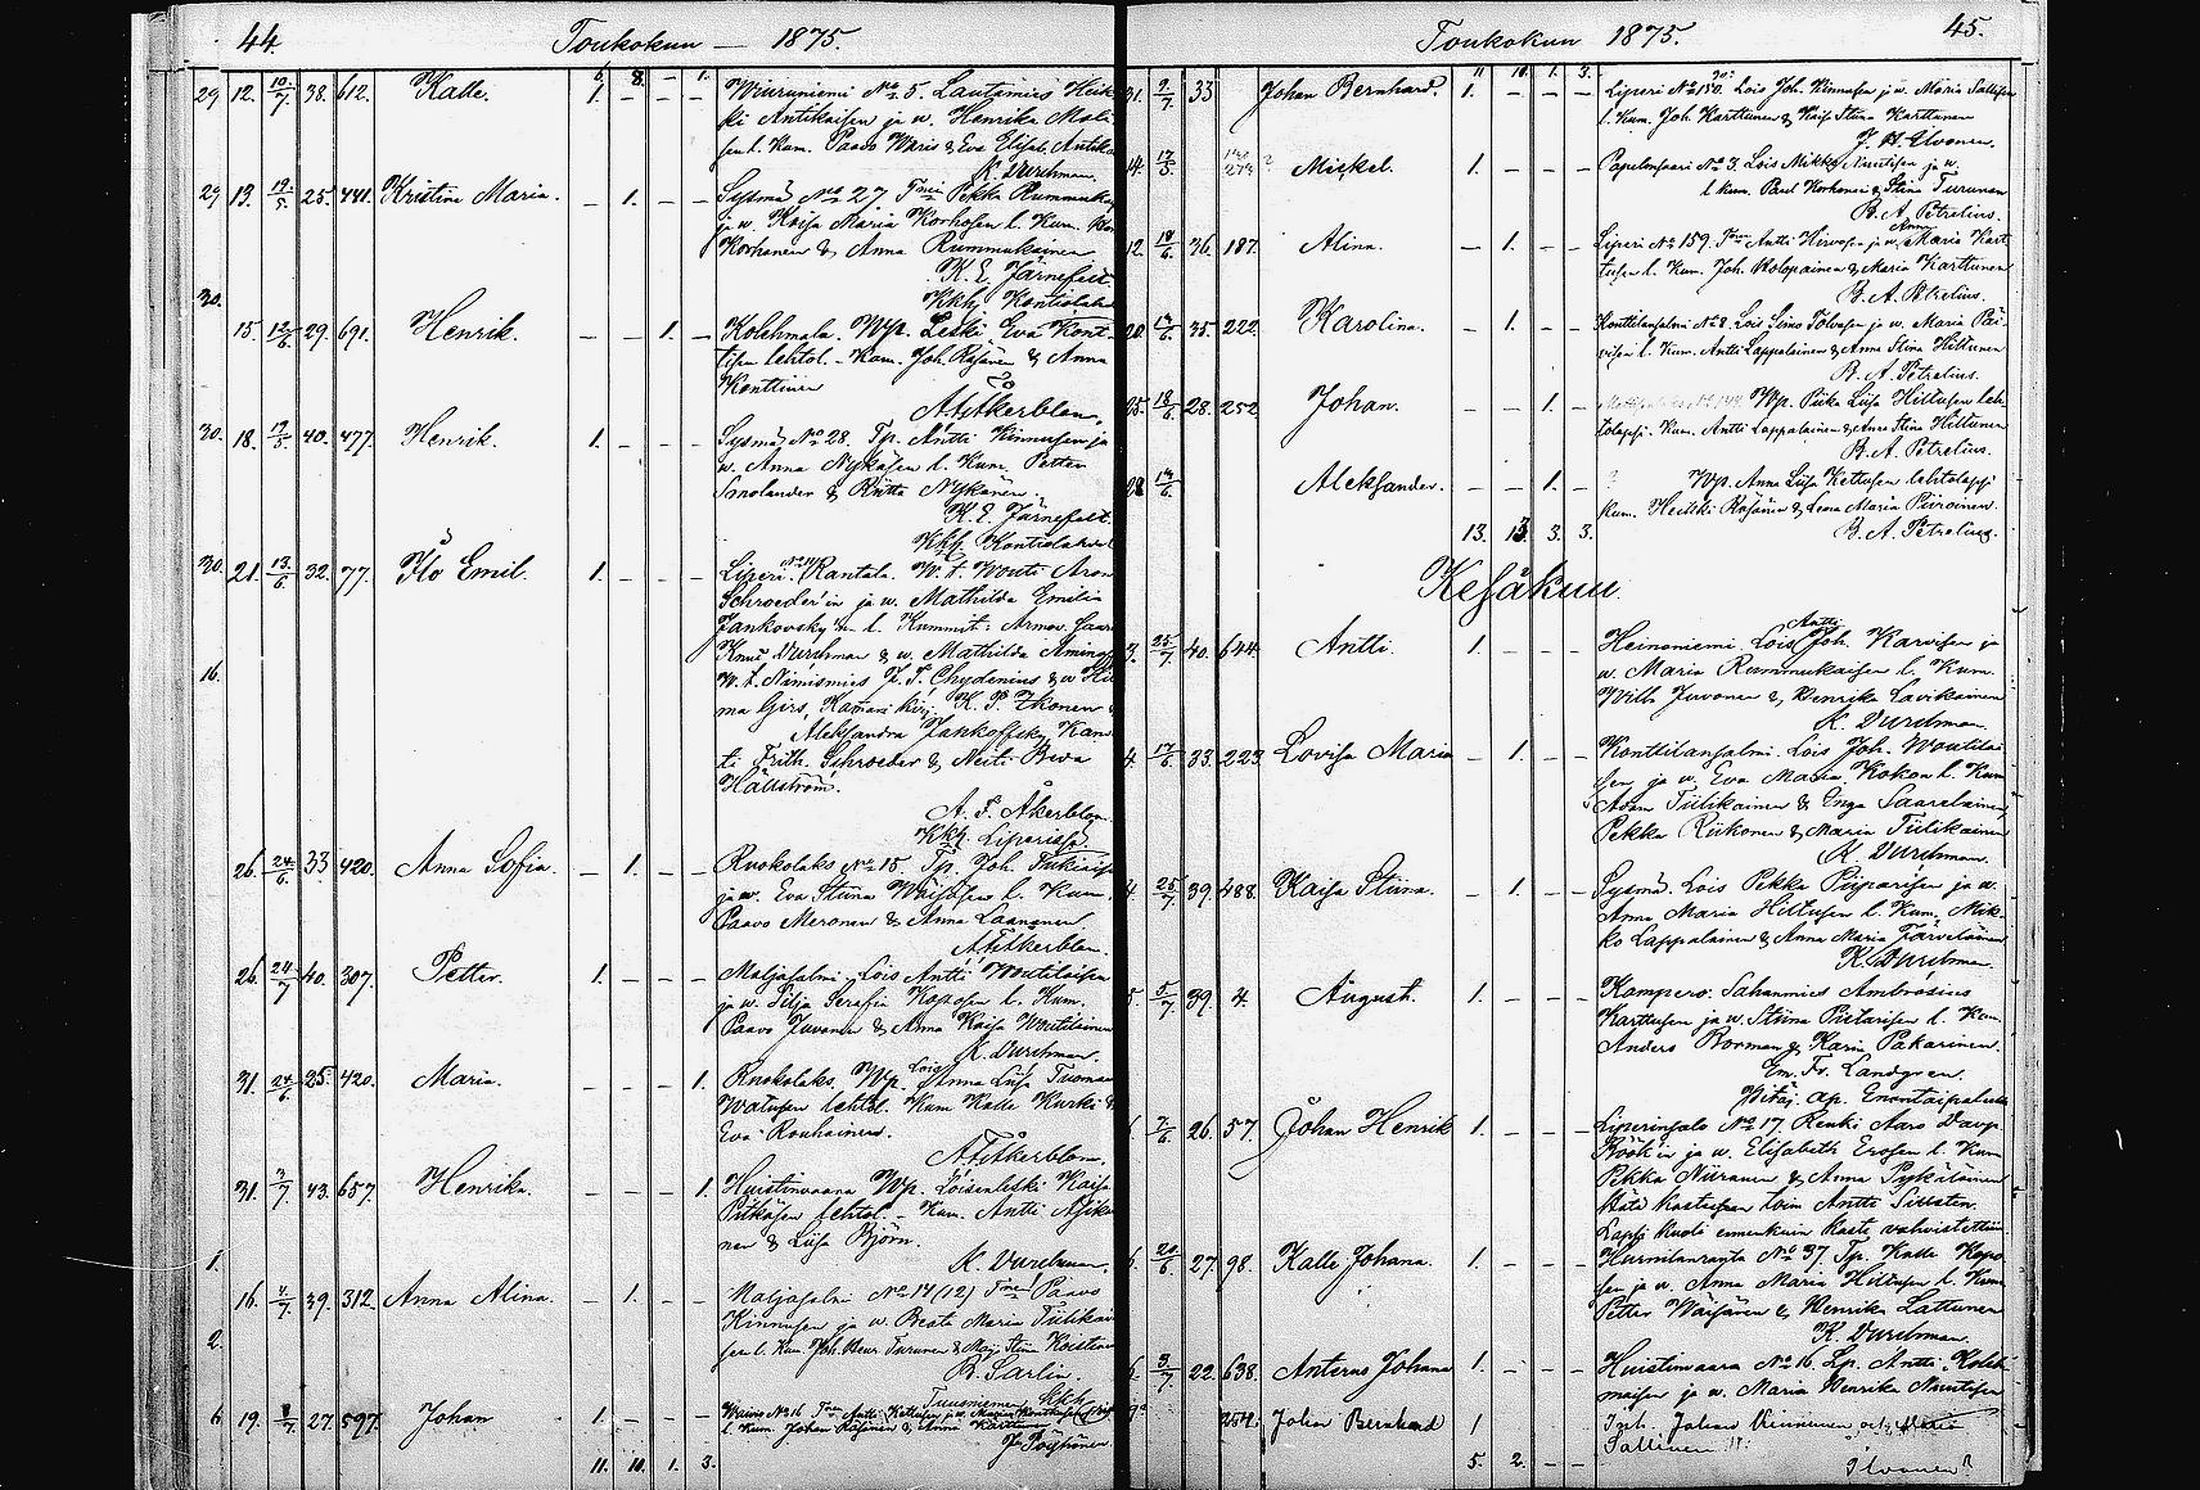 44. Toukokuu — 1875.
6. 8. – 1.
29 12. 10/7. 38. 612. Kalle. 1. – – – Wiuruniemi No 5. Lautamies Heik
ki Antikaisen ja w. Henrika
l. Kum. Paavo Waris & Eva Elisab. Antika
K. Durchman.
29 13. 19/5. 25. 441. Kristina Maria. – 1. – – Sysmä No 27 Pekka Rummuka
ja w. Kaisa Maria Korhosen l. Kum.
Korhonen & Anna Rummukainen
K. E. Järnefelt.
Kkh. Kontiolahd
30.
15. 12/6. 29. 691. Henrik. – – 1. – Kolehmala. Wp. Leski Eva Kont-
tisen lehtol. – Kum. Joh. Räsänen & Anna
Konttinen
A. F. Åkerblom.
30. 18. 19/5 40. 477. Henrik. 1. – – – Sysmä No 28. Tp. Antti Kinnusen ja
w. Anna Nykäsen l. Kum. Petter
Smolander & Riitta Nykänen.
K. E. Järnefelt.
Kkh. Kontiolahdel
30. 21. 13/6. 32. 77. Ilo Emil. 1. – – – Liperi. Rantala. W. t. Wouti Aron
Schroeder'in ja w. Mathilda Emilia
Jankovsky'n l. Kummit:
Knut Durchman & w. Mathilda Aminof
16. W. t. Nimismies F. F. Chydenius & w Hil
ma Girs, K. P. Ikonen
Aleksandra Jankoffsky, Kan
ti Frith. Schroeder & Neiti Beda
Hällström.
A. F. Åkerblom.
Kkh. Liperissä.
26. 24/6. 33 420. Anna Sofia. – 1. – – Ruokolaks No 15. Tp. Joh. Tukiais
ja w. Eva Stiina Wäisäsen l. Kum.
Paavo Meronen & Anna Laanonen
A. F. Åkerblom.
26. 24/7 40. 307. Petter. 1. – – – Maljasalmi. Lois Antti Woutilaisen
ja w. Silja Serafia Koposen l. Kum.
Paavo Juvonen & Anna Kaisa Woutilainen
K. Durchman.
31. 24/6. 25. 420. Maria. – – – 1. Ruokolaks. Wp. Lois Anna Liisa Tuoma
Watusen lehtol. Kum Kalle Kurki &
Eva Rouhainen.
A. F. Åkerblom.
31. 3/7. 43. 657. Henrika. – – – 1. Huistinvaara Wp. Loisenleski Kaisa
Pitkäsen lehtol. – Kum. Antti Asika
nen & Liisa Björn.
1. K. Durchman.
16. 4/7. 39. 312. Anna Alina. – 1. – – Maljasalmi No 14 (12) Paavo
Kinnusen ja w. Beata Maria Tiilikai
2. sen l. Kum. Joh. Henr. Turunen & Maj. Stiina Koistine
B. Sarlin.
Tuusniemen Kkh
6 19. 8/7. 27. 597. Johan 1. – – – No 16 Antti Kettusen ja w. Maria
l. Kum. Johan Räsänen & Anna Karttunen
J. Pöyhönen.
11. 10. 1. 3.
Toukokuu 1875. 45.
11 10. 1. 3.
31. 9/7. 33 Johan Bernhard. 1. – – – Liperi No 150. Lois Joh. Kinnusen ja w. Maria Sallisen
l. Kum. Joh. Karttunen & Kaisa Stiina Karttunen
J. H. Ilvonen.
14. 17/5. 273 ? Mickel. 1. – – – Papelonsaari No 3. Lois Mikko Nuutisen ja w.
l. Kum. Paul Korhonen & Stina Turunen
B. A. Petrelius.
12. 18/6. 36. 187. Alina. – 1. – – Liperi No 159. Antti Hirvosen ja w. Anna Maria Kart-
tusen l. Kum. Joh. Kolopainen & Maria Karttunen
B. A. Petrelius.
20. 14/6. 35. 222. Karolina. – 1. – – Konttilansalmi No 8. Lois Simo Tolvasen ja w. Maria Päi-
visen l. Kum. Antti Lappalainen & Anna Stina Hiltunen
B. A. Petrelius.
25. 18/6. 28. 252 Johan. – – 1. – Wp. Piika Liisa Hiltusen leh-
tolapsi. Kum. Antti Lappalainen & Anna Stina Hiltunen
B. A. Petrelius.
28 14/6. Aleksander. – – 1. – ? Wp. Anna Liisa Kettusen lehtolapsi
Kum. Heikki Räsänen & Lena Maria Piiroinen.
13. 13. 3. 3. B. A. Petrelius.
Kesäkuu.
3. 25/7. 40. 644. Antti. 1. – – – Heinoniemi. Lois Antti Joh. Karvisen ja
w. Maria Rummukaisen l. Kum.
Wilh Juvonen & Henrika Lavikainen
K. Durchman.
4. 17/6. 33. 223. Lovisa Maria – 1. – – Konttilansalmi. Lois Joh. Woutilai
sen ja w. Eva Maria Kokon l. Kum
Adam Tiilikainen & Inga Saarelainen,
Pekka Riikonen & Maria Tiilikainen
K. Durchman.
4. 25/7. 39. 488. Kaisa Stiina. – 1. – – Sysmä. Lois Pekka Piiparisen ja w.
Anna Maria Hiltusen l. Kum. Mik-
ko Lappalainen & Anna Maria Järveläinen
K. Durchman.
5. 5/7. 39. 4. August. 1. – – – Kompero. Sahanmies Ambrosius
Karttusen ja w. Stiina Pietarisen l. Kum.
Anders Borman & Karin Pakarinen.
Em. Fr. Landgren.
Pitäj. ap. Enontaipaleella
7/6. 26. 57. Johan Henrik 1. – – – Liperinsalo No 17. Renki Aaro Davp.
Röök'in ja w. Elisabeth Erosen l. Kum
Pekka Niiranen & Anna Pykäläinen
Hätä kastusen toim Antti Sivosten.
Lapsi kuoli ennenkuin kaste vahvistettiin
6. 20/6. 27. 98. Kalle Johana. 1. – – – No 37. Tp. Kalle Kopo
sen ja w. Anna Maria Hiltusen l. Kum
Petter Wäisänen & Henrika Lattunen
K. Durchman.
6. 3/7. 22. 638. Anterus Johana 1. – – – Huistinvaara No 16. Lp. Antti Koleh-
maisen ja w. Maria Henrika Nuutisen
254. Johan Bernhard 1 Inh. Johan Kinnunen och Maria
Sallinen
5. 2. – – Ilvonen?